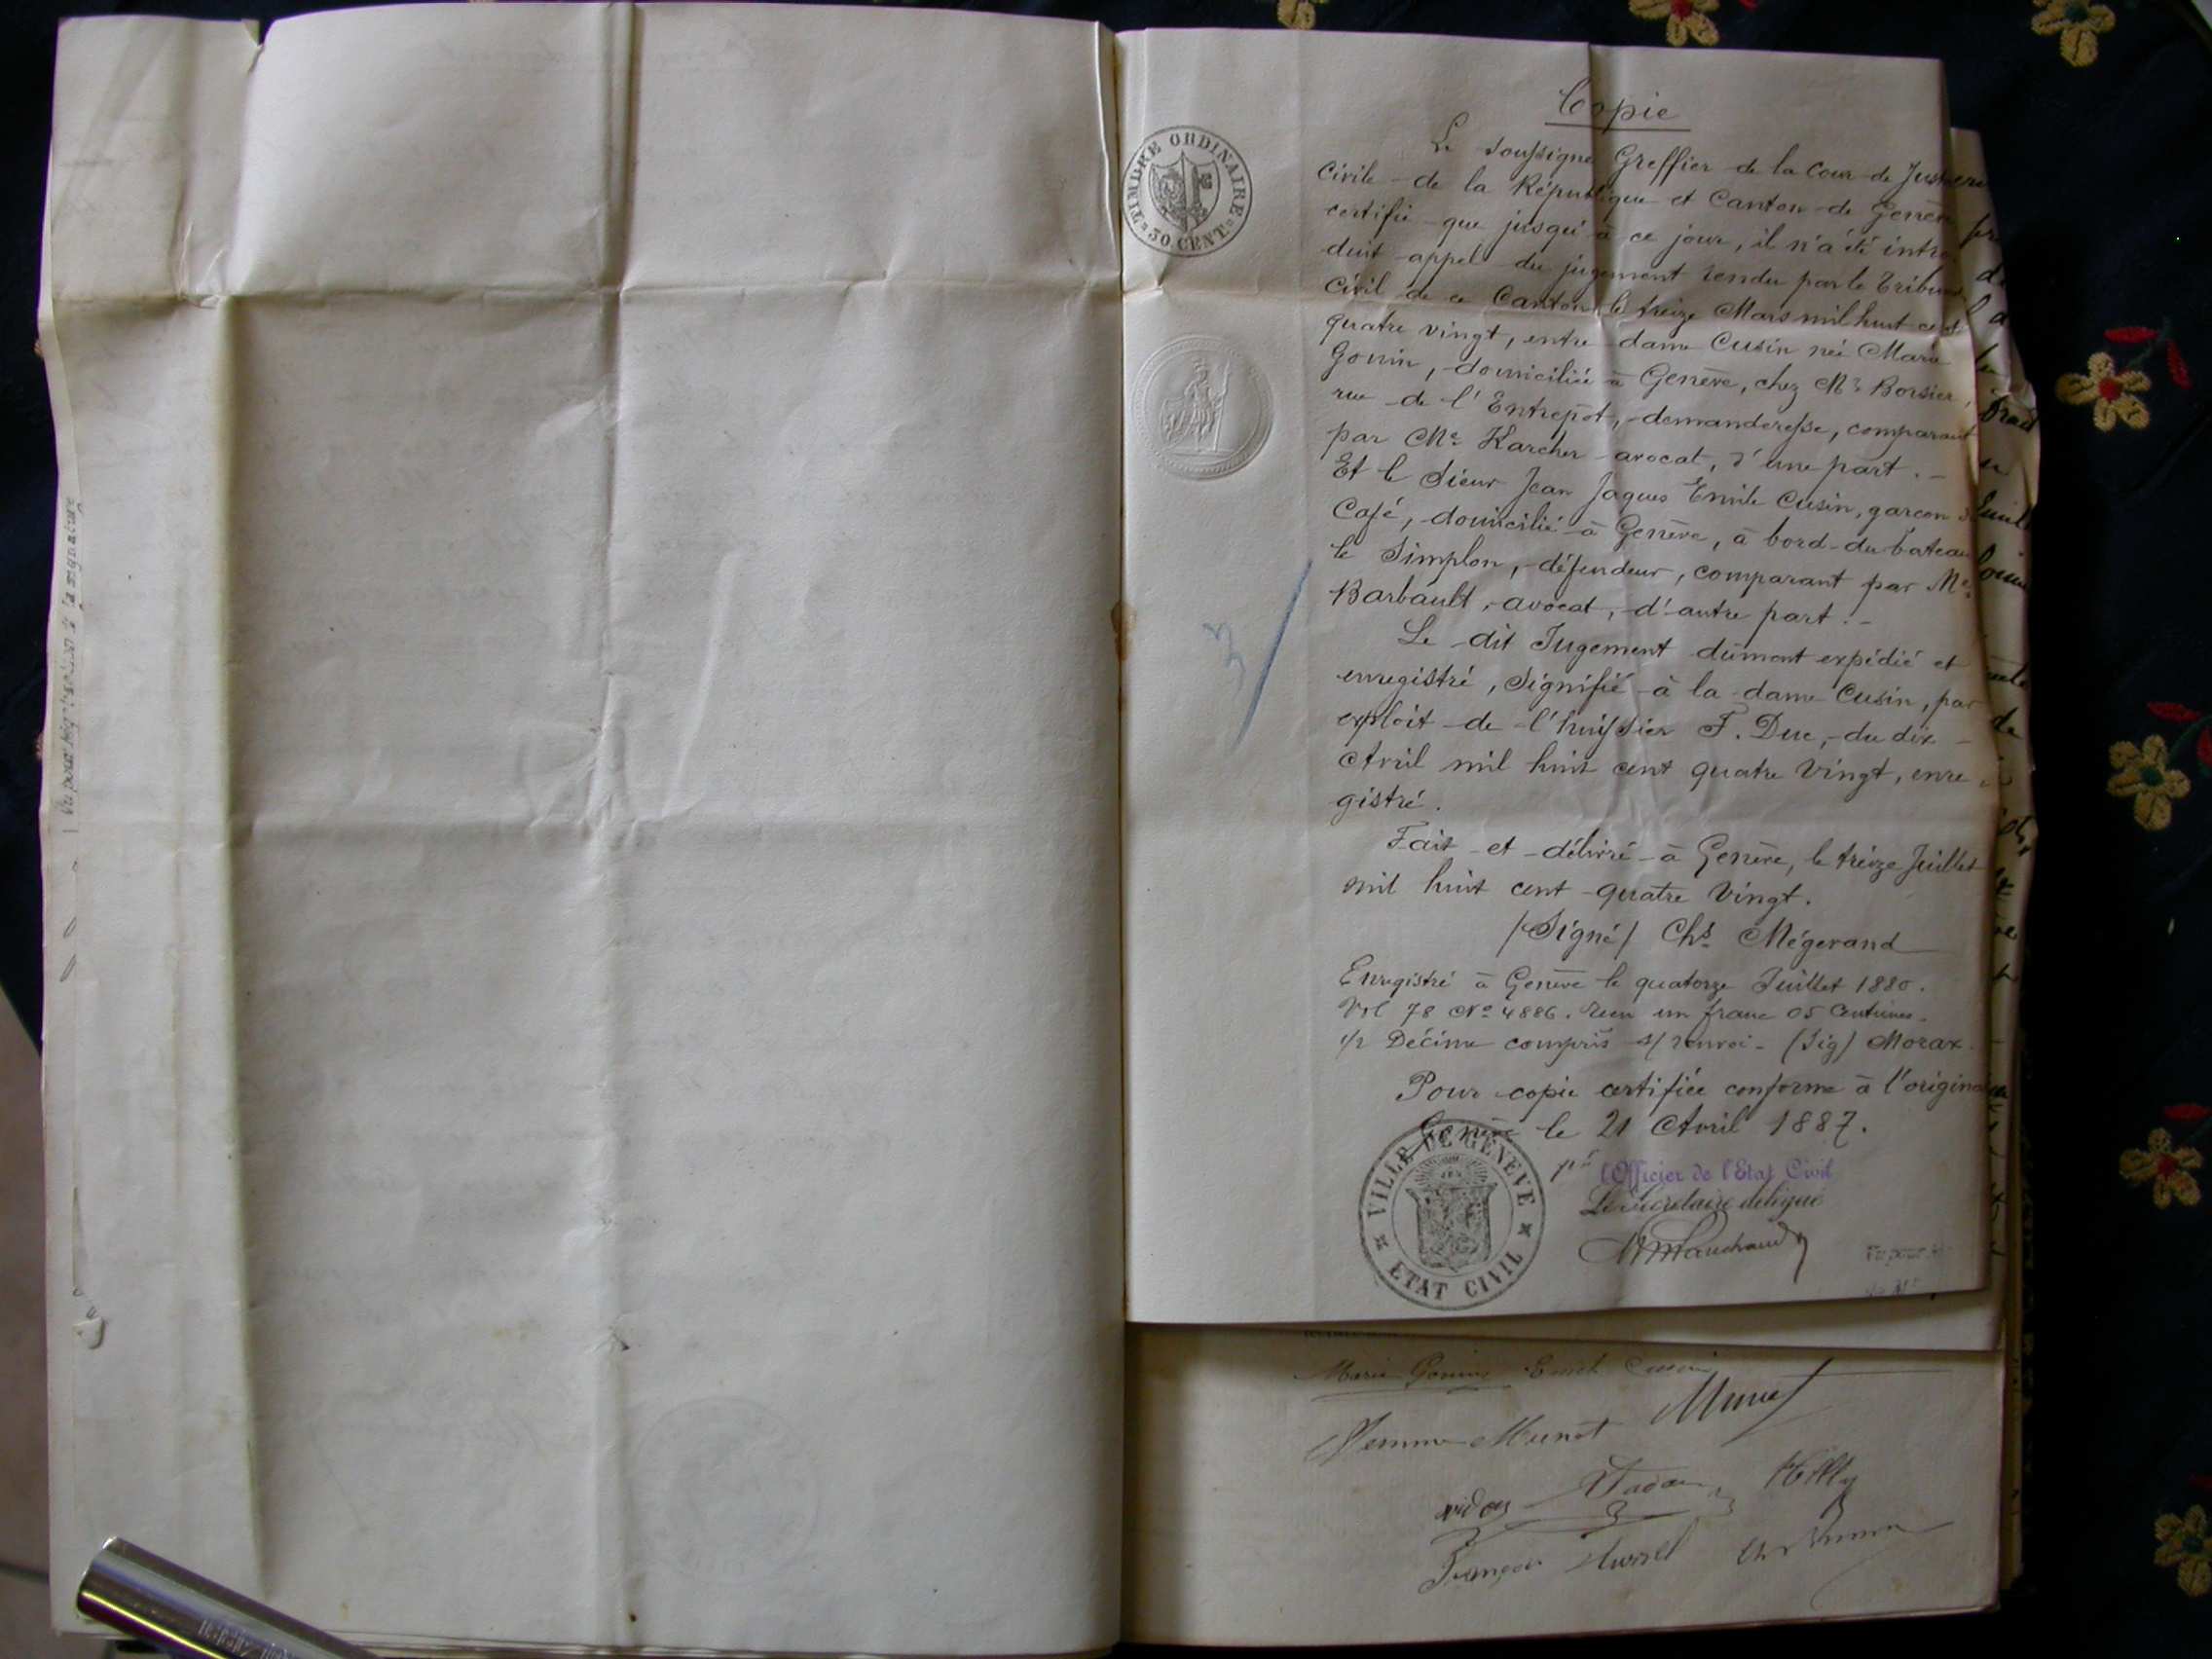 Copie
Le soussigné Greffier de la Cour de Justice
civile de la République et Canton de Genève
certifie que jusqu'à ce jour, il n'a été intro
duit appel du jugement rendu par le Tribunal
Civil de ce Canton le treize Mars mil huit cent
quatre vingt, entre dame Cusin née Marie
Gonin, domiciliée à Genève, chez Mr Borsier,
rue de l'Entrepôt, demanderesse, comparant
par Me Karcher avocat, d'une part.-
Et le Sieur Jean Jaques Emile Cusin, garçon de
Café, domicilié à Genève, à bord du bateau
le Simplon, défendeur, comparant par Me
Barbault, avocat, d'autre part.-
Le dit Jugement dûment expédié et
enregistré, signifié à la dame Cusin, par
exploit de l'huissier F. Duc, du dix
Avril mil huit cent quatre vingt, enre
gistré.
Fait et délivré à Genève, le treize Juillet
mil huit cent quatre vingt.
/Signé/ Chs Mégerand
Enregistré à Genève le quatorze Juillet 1880.
Vol 78 No 4886. Reçu un franc 05 Centimes
1/2 Décime compris s/ renvoi - (Sig) Morax
Pour copie certifiée conforme à l'original
Genève le 21 Avril 1887.
pr l'Officier de l'Etat Civil
Le Secrétaire délégué
TIMBRE ORDINAIRE
30 CENT.
3
VILLE DE GENÈVE
ETAT CIVIL
Vu pour légalisation de la signature
Marie Gonin Emile Cusin
Femme Munot
François